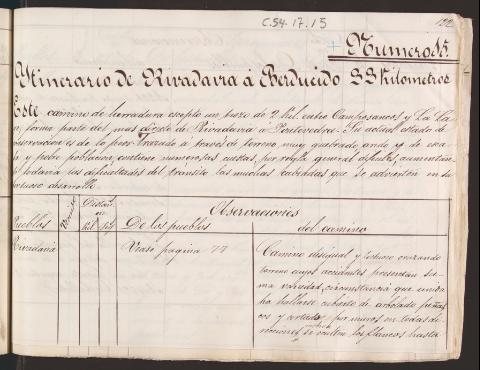 C.54.17.15
122
Numero 15.
Itinerario de Rivadavia á Berducido 33 Kilometros
Este camino de herradura escepto un trozo de 2 Kil. entre Camposancos y La La-
, forma parte del mas de Rivadavia á Pontevedra. Su actual estado de
conservacion es de lo peor trazado á traves de terreno muy quebrado, arido y de esca-
y pobre poblacion, contiene numerosas cuestas, por regla general dificiles, aumentan
todavia las dificultades del transito las muchas que se advierten en su
tortuoso desarrollo.
Pueblos
Vecinos
Distan. en
Kil.
Observaciones
De los pueblos
del camino
Rivadavia
Vease pagina 77
Camino desigual y tortuoso cruzando
terreno cuyos accidentes presentan su-
ma variedad, circunstancia que unida
ha hallarse cubierto de arbolado, peñas-
cos y cortado por muros en todas di-
recciones, se ocultan los flancos hasta